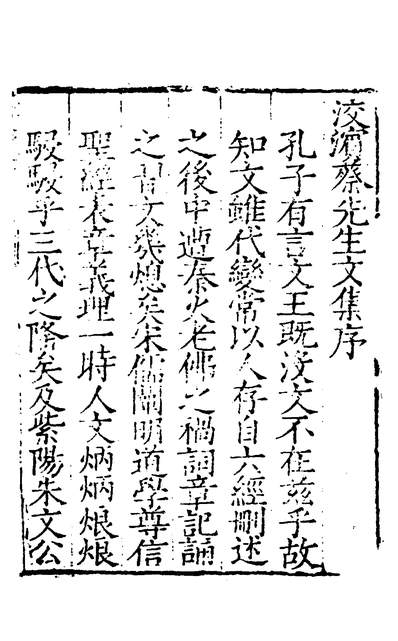 洨濱蔡先生文集序
孔子有言文王既沒文不在茲乎故
知文雖代變常以人存自六經刪述
之後中遭秦火老佛之禍詞章記誦
之習文幾熄矣宋儒闡明道學尊信
聖經表章義理一時人文炳炳烺烺
駸駸乎三代之隆矣及紫陽朱文公